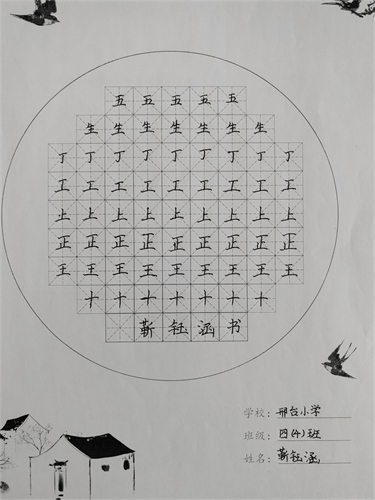 五五五五五
生生生生生生生
丁丁丁丁丁丁丁丁丁
工工工工工工工工工
上上上上上上上上上
正正正正正正正正正
王王王王王王王王王
十十十十十十十
靳钰涵书
学校：邢台小学
班级：四(4)班
姓名：靳钰涵